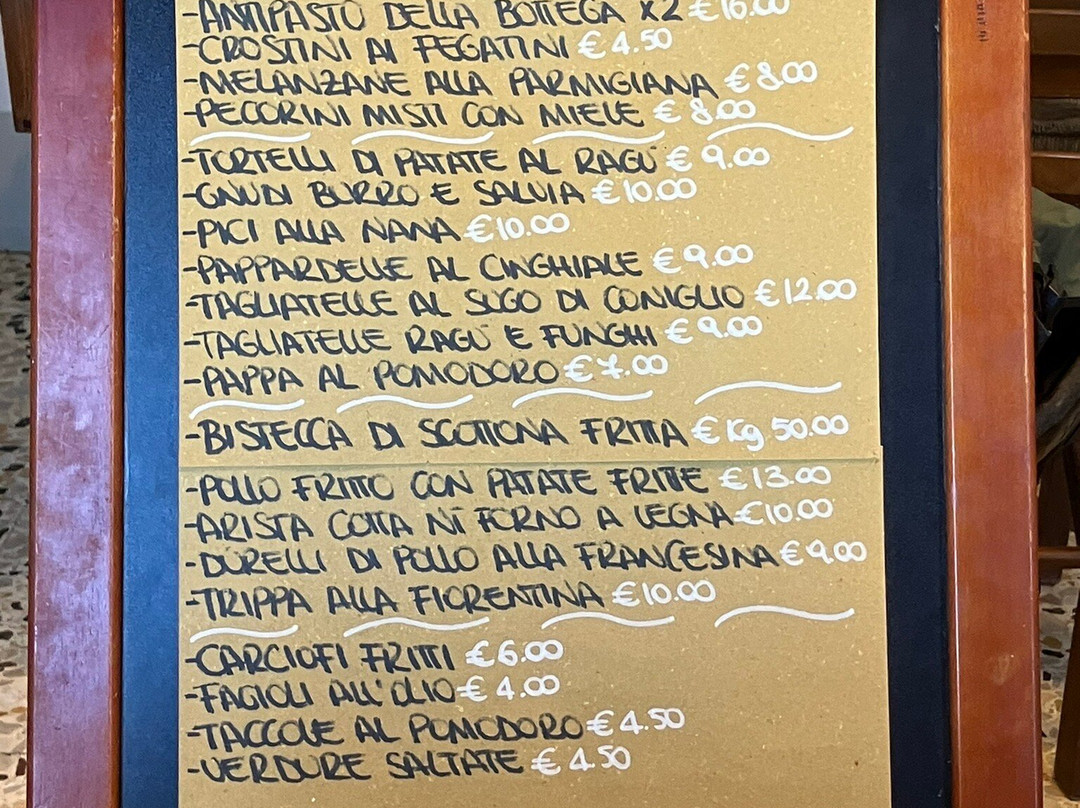 -ANTIPASTO DELLA BOTTEGA x2 € 16.00
-CROSTINI AI FEGATINI € 4.50
-MELANZANE ALLA PARMIGIANA € 8.00
-PECORINI MISTI CON MIELE € 8.00
-TORTELLI DI PATATE AL RAGÙ € 9.00
-GNUDI BURRO E SALVIA € 10.00
-PICI ALLA NANA € 10.00
-PAPPARDELLE AL CINGHIALE € 9.00
-TAGLIATELLE AL SUGO DI CONIGLIO € 12.00
-TAGLIATELLE RAGÙ E FUNGHI € 9.00
-PAPPA AL POMODORO € 7.00
-BISTECCA DI SCOTTONA FRITTA € Kg. 50.00
-POLLO FRITTO CON PATATE FRITTE € 13.00
-ARISTA COTTA NI FORNO A LEGNA € 10.00
-DURELLI DI POLLO ALLA FRANCESINA € 9.00
-TRIPPA ALLA FIORENTINA € 10.00
-CARCIOFI FRITTI € 6.00
-FAGIOLI ALL'OLIO € 4.00
-TACCOLE AL POMODORO € 4.50
-VERDURE SALTATE € 4.50